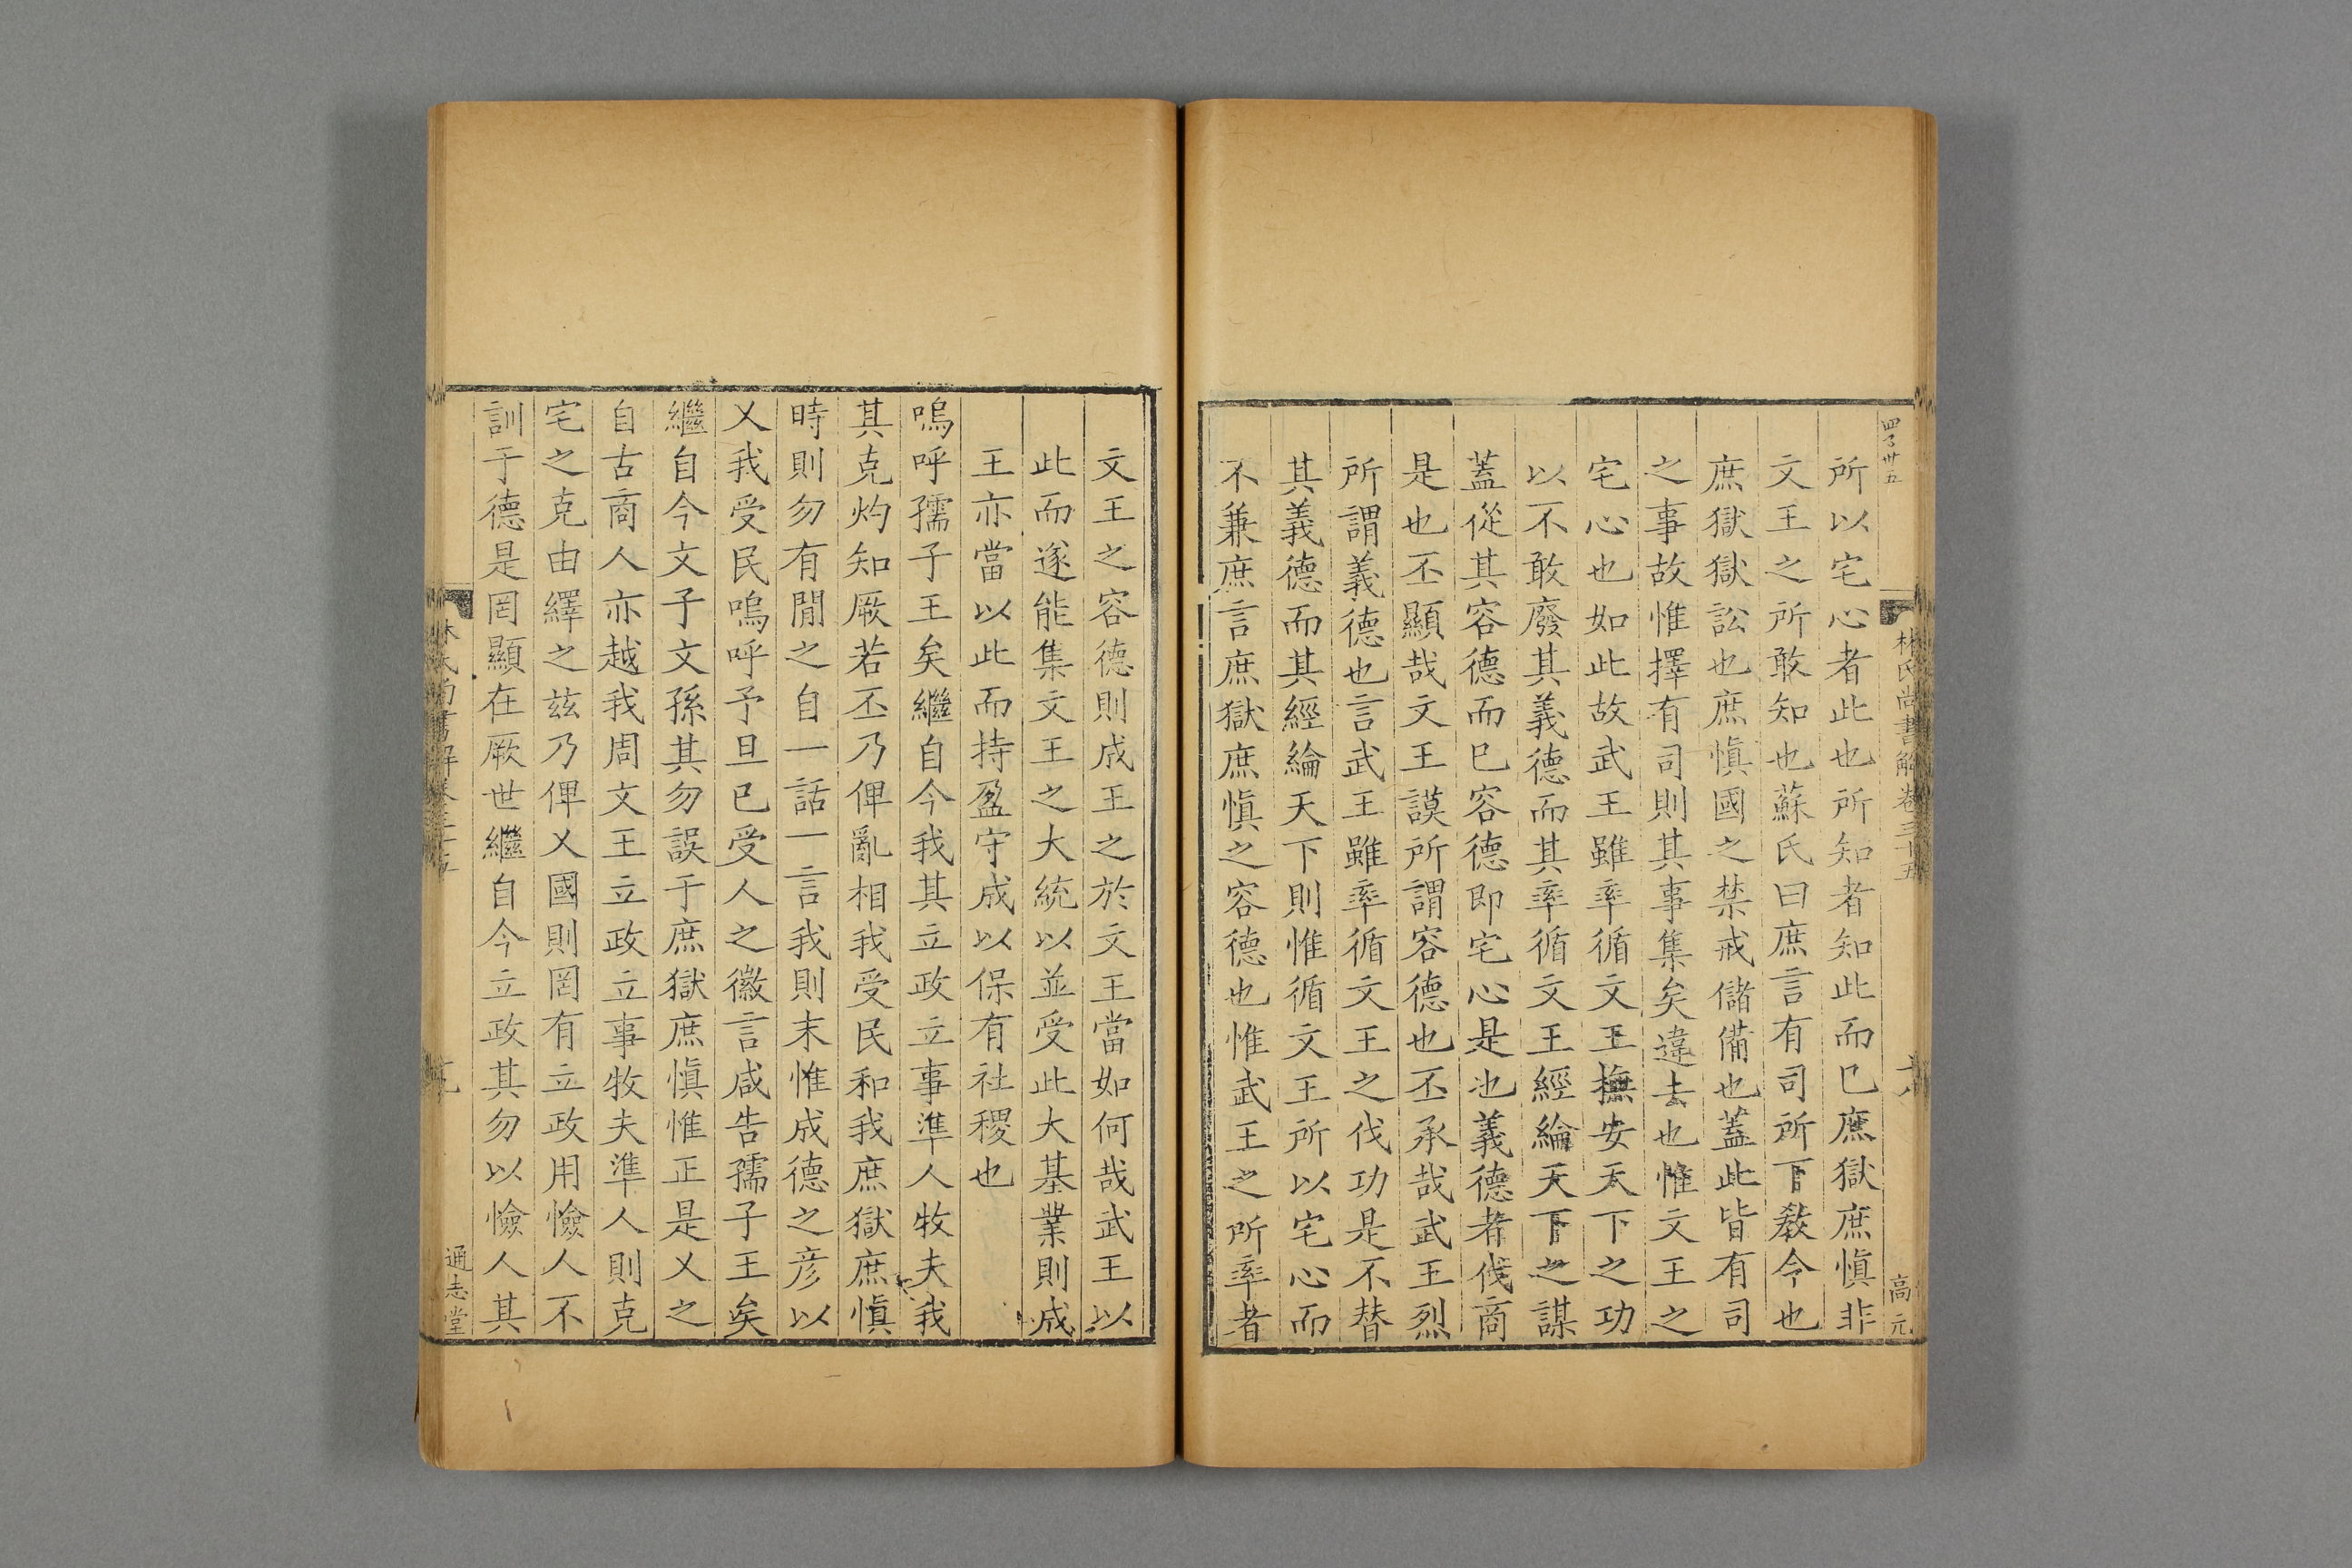 四百卅五
林氏尚書解卷三十五
十八
高元
所以宅心者此也所知者知此而已庶獄庶慎非
文王之所敢知也蘇氏曰庶言有司所下敎令也
庶獄獄訟也庶慎國之禁戒儲備也蓋此皆有司
之事故惟擇有司則其事集矣違去也惟文王之
宅心也如此故武王雖率循文王撫安天下之功
以不敢廢其義德而其率循文王經綸天下之謀
蓋從其容德而已容德即宅心是也義德者伐商
是也丕顯哉文王謨所謂容德也丕承哉武王烈
所謂義德也言武王雖率循文王之伐功是不替
其義德而其經綸天下則惟循文王所以宅心而
不兼庶言庶獄庶慎之容德也惟武王之所率者
文王之容德則成王之於文王當如何哉武王以
此而遂能集文王之大統以並受此大基業則成
王亦當以此而持盈守成以保有社稷也
嗚呼孺子王矣繼自今我其立政立事準人牧夫我
其克灼知厥若丕乃俾亂相我受民和我庶獄庶慎
時則勿有間之自一話一言我則末惟成德之彥以
乂我受民嗚呼予旦已受人之徽言咸告孺子王矣
繼自今文子文孫其勿誤于庶獄庶慎惟正是乂之
自古商人亦越我周文王立政立事牧夫準人則克
宅之克由繹之茲乃俾乂國則罔有立政用憸人不
訓于德是罔顯在厥世繼自今立政其勿以憸人其
林氏尚書解卷三十五
十九
通志堂